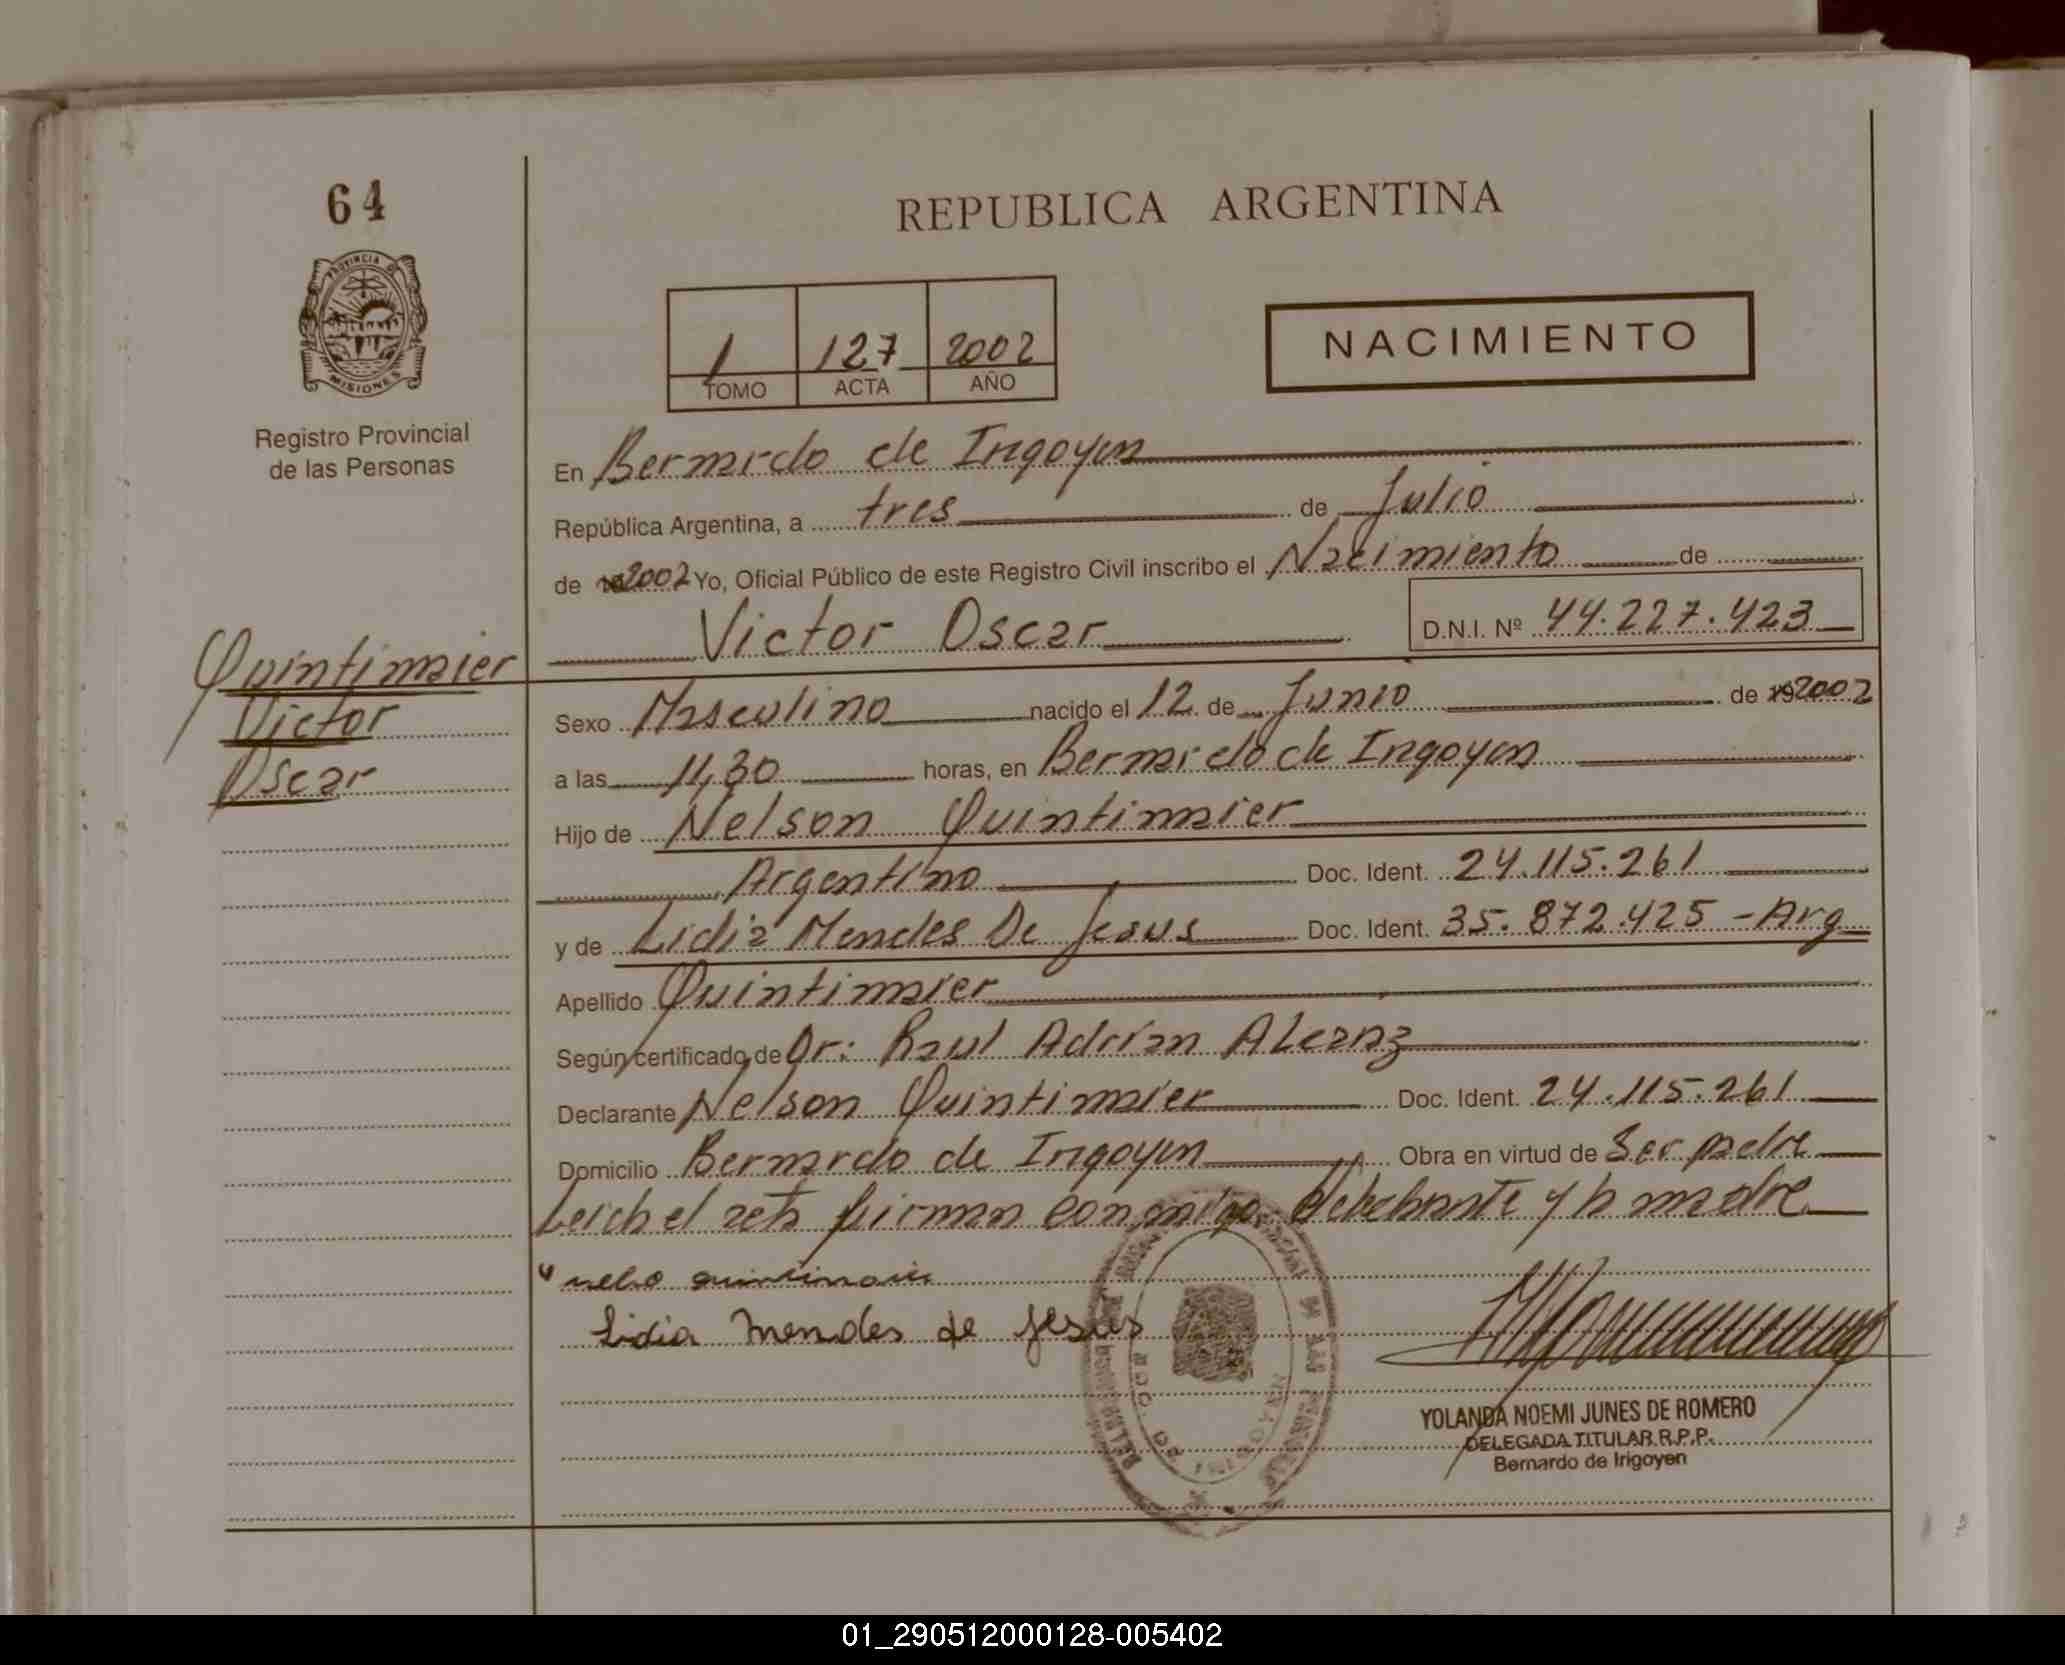 64
REPUBLICA ARGENTINA
PROVINCIA DE
MISIONES
Registro Provincial
de las Personas
1 127 2002
TOMO ACTA AÑO
NACIMIENTO
En Bernardo de Irigoyen
República Argentina, a tres de Julio
de 2002 Yo, Oficial Público de este Registro Civil inscribo el Nacimiento de
Victor Oscar D.N.I. Nº 44.227.423
Quintimaier
Victor
Oscar
Sexo Masculino nacido el 12 de Junio de 192002
a las 11,30 horas, en Bernardo de Irigoyen
Hijo de Nelson Quintimaier
Argentino Doc. Ident. 24.115.261
y de Lidia Mendes De Jesus Doc. Ident. 35.872.425 - Arg
Apellido Quintimaier
Según certificado de Dr: Raul Adrian ALcaraz
Declarante Nelson Quintimaier Doc. Ident. 24.115.261
Domicilio Bernardo de Irigoyen Obra en virtud de Ser padre
Leida el acta firman conmigo el declarante y la madre
Lidia mendes de jesus
YOLANDA NOEMI JUNES DE ROMERO
DELEGADA TITULAR R.P.P.
Bernardo de Irigoyen
01_290512000128-005402